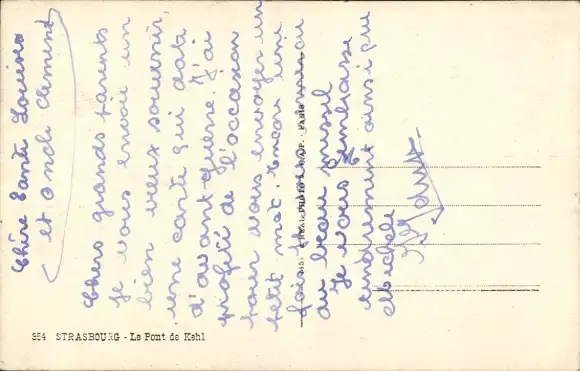 Chère Tante Louise
et oncle Clément
Chers grands parents
Je vous envoie un
bien vieux souvenir,
une carte qui date
d'avant-guerre. J'ai
profité de l'occasion
pour vous envoyer un
petit mot. Encore une
fois
au beau missel
Je vous embrasse
tendrement ainsi que
Michele
354 STRASBOURG - Le Pont de Kehl